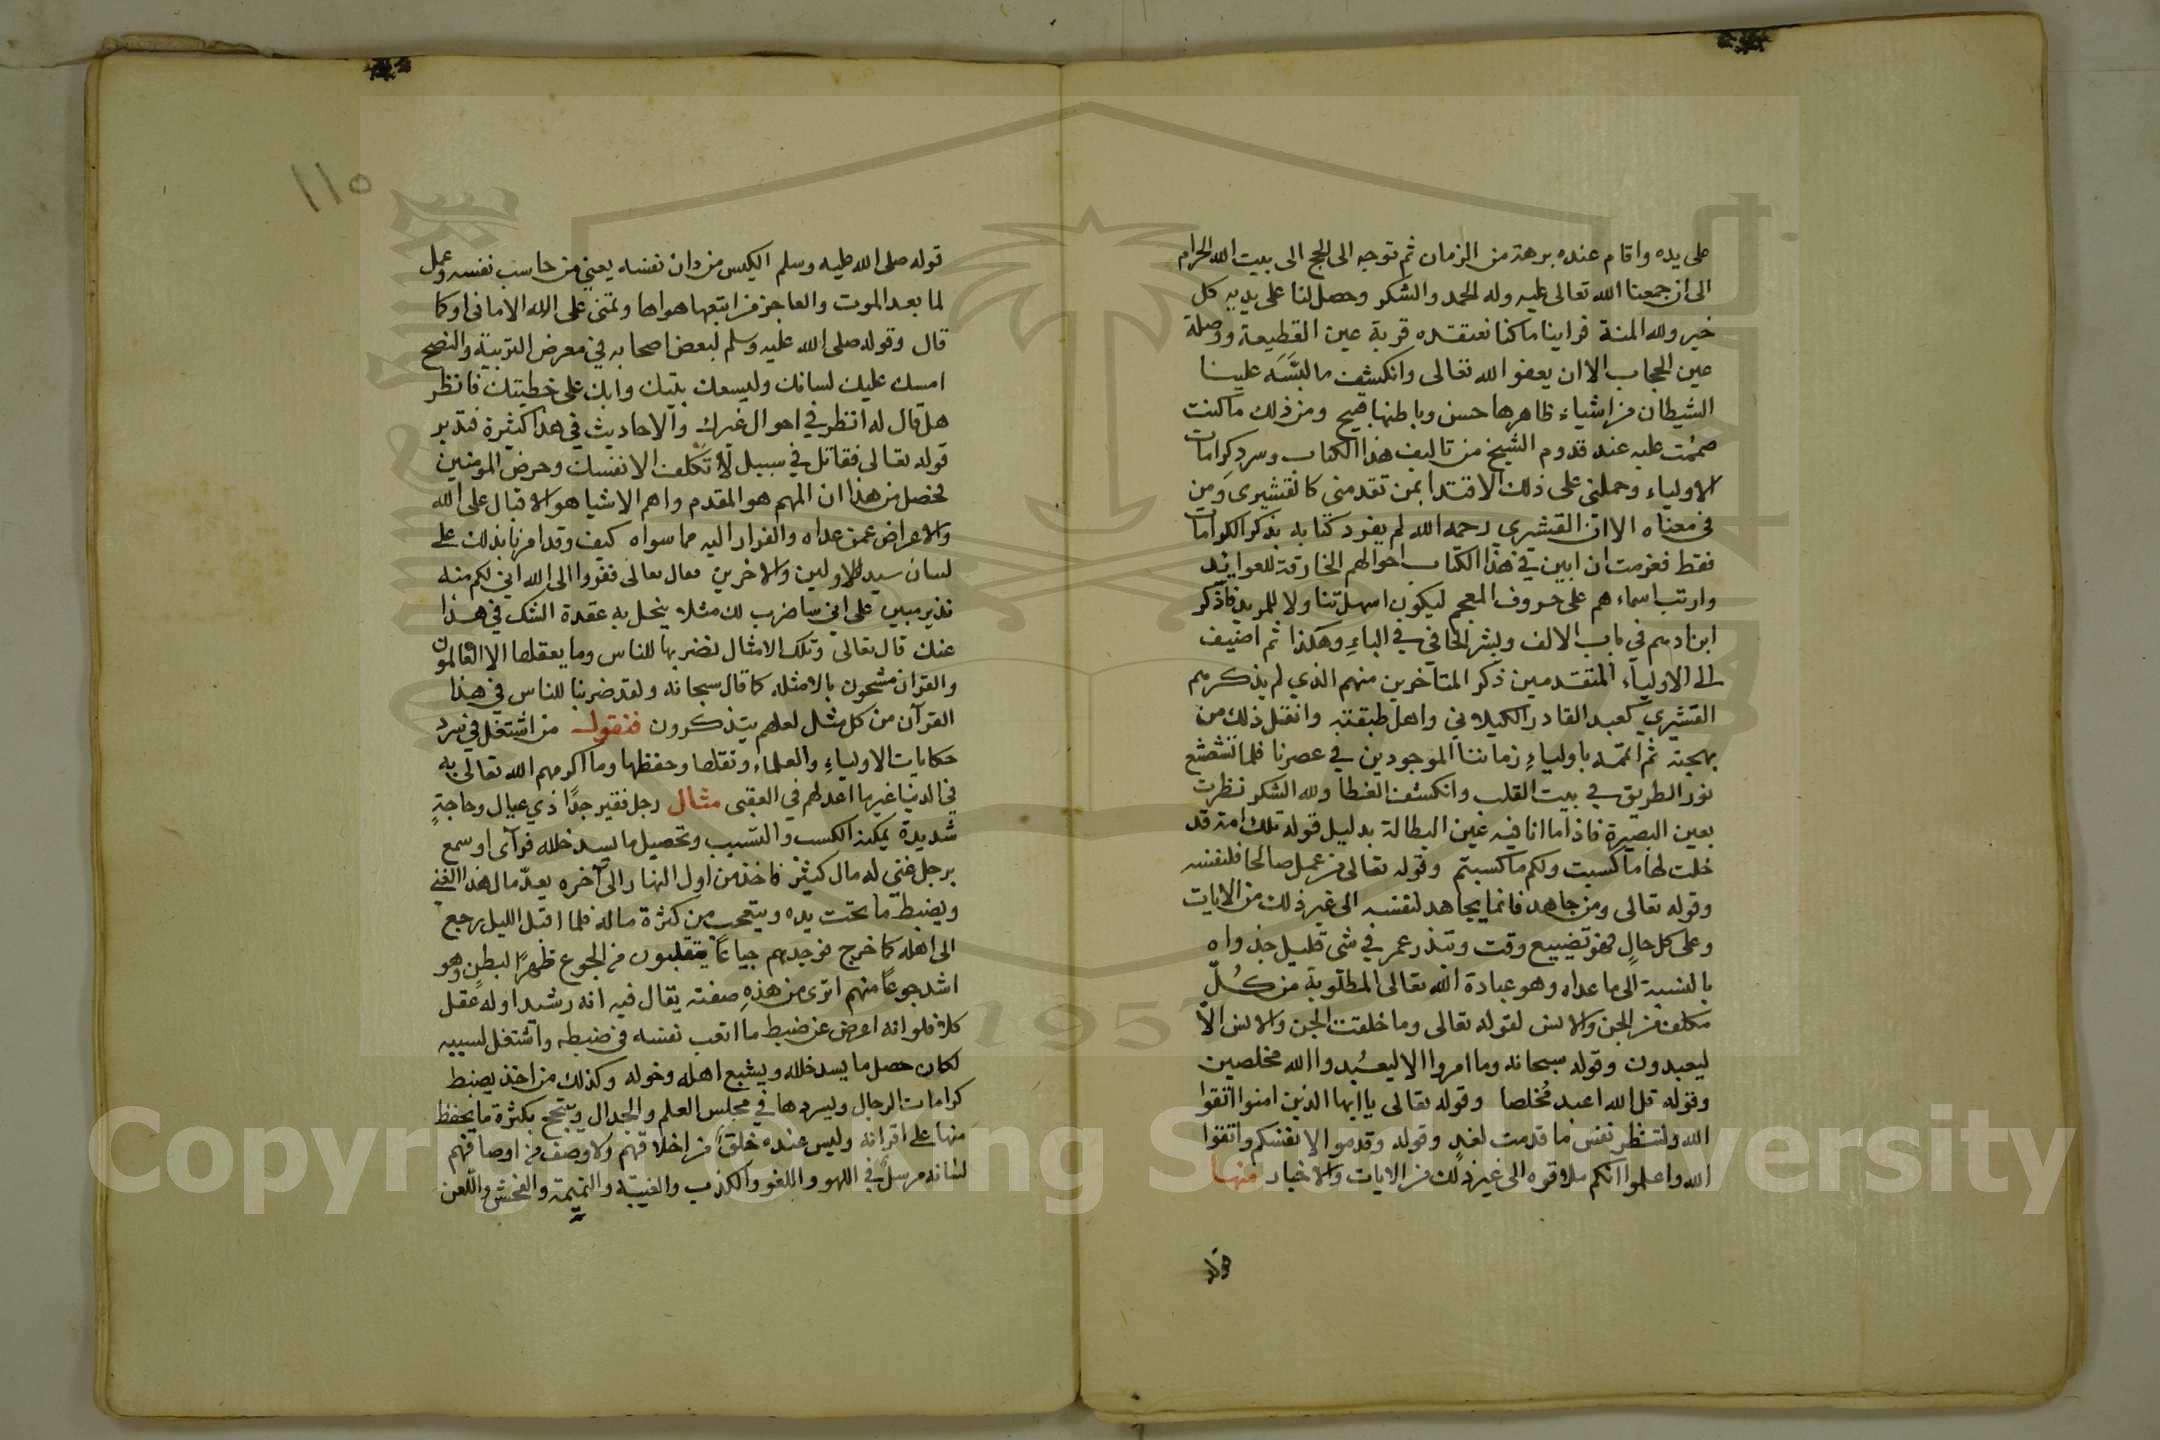 على يده واقام عنده برهة من الزمان ثم توجه الى الحج الى بيت الله الحرام
الى ان جمعنا الله تعالى عليه وله الحمد والشكر وحصل لنا على يديه كل
خير ولله المنة فراينا ما كنا نعتقده قربة عين القطيعة ووصلة
عين الحجاب الا ان يعفو الله تعالى وانكشف ما لبَّسَه علينا
الشيطان من اشياء ظاهرها حسن وباطنها قبيح ومن ذلك ما كنت
صممت عليه عند قدوم الشيخ من تاليف هذا الكتاب وسرد كرامات
الاولياء وحملني على ذلك الاقتدا بمن تقدمني كالقشيري ومن
في معناه الا ان القشري رحمه الله لم يفرد كتابه بذكر الكرامات
فقط فعزمت ان ابين في هذا الكتاب احوالهم الخارقة للعوايد
وارتب اسماءهم على حروف المعجم ليكون اسهل تناولا للمريد فاذكر
ابن ادهم في باب الالف وبشر الحافي في الباء وهكذا ثم اضيف
الى الاولياء المتقدمين ذكر المتاخرين منهم الذي لم يذكرهم
القشيري كعبد القادر الكيلاني واهل طبقته وانقل ذلك من
بهجته ثم اتمه باولياء زماننا الموجودين في عصرنا فلما تشعشع
نور الطريق في بيت القلب وانكشف الغطا ولله الشكر نظرت
بعين البصيرة فاذا ما انا فيه عين البطالة بدليل قوله تلك امة قد
خلت لها ما كسبت ولكم ما كسبتم وقوله تعالى من عمل صالحا فلنفسه
وقوله تعالى ومن جاهد فانما يجاهد لنفسه الى غير ذلك من الايات
وعلى كل حال فهو تضييع وقت وتبذر عمر في شى قليل جذواه
بالنسبة الى ما عداه وهو عبادة الله تعالى المطلوبة من كُلّ
مكلف من الجن والانس لقوله تعالى وما خلقت الجن والانس الا
ليعبدون وقوله سبحانه وما امروا الا ليعبُدوا الله مخلصين
وقوله قل الله اعبد مُخلصا وقوله تعالى يا ايها الذين امنوا اتقوا
الله ولتنظر نفس ما قدمت لغدٍ وقوله وقدموا لانفسكم واتقوا
الله واعلموا انكم ملاقوه الى غير ذلك من الايات والاخبار منها
قوله
١١٥
قوله صلى الله عليه وسلم الكيس من دان نفسه يعني من حاسب نفسه وعمل
لما بعد الموت والعاجز من اتبعها هواها وتمنى على الله الاماني او كما
قال وقوله صلى الله عليه وسلم لبعض اصحابه في معرض التربية والنصح
امسك عليك لسانك وليسعك بيتك وابك على خطيتك فانظر
هل قال له انظر في احوال غيرك والاحاديث في هذا كثيرة فتدبر
قوله تعالى فقاتل في سبيل لا تكلف الا نفسك وحرض المومنين
فحصل من هذا ان المهم هو المقدم واهم الاشيا هو الاقبال على الله
والاعراض عمن عداه والفرار اليه مما سواه كيف وقد امرنا بذلك على
لسان سيد الاولين والاخرين فقال تعالى ففروا الى الله اني لكم منه
نذير مبين على اني ساضرب لك مثلا ينحل به عقدة الشك في هذا
عنك قال تعالى وتلك الامثال نضربها للناس وما يعقلها الا العالمون
والقران مشحون بالامثله كما قال سبحانه ولقد ضربنا للناس في هذا
القرآن من كل مثل لعلهم يتذكرون فنقول من اشتغل في سرد
حكايات الاولياء والعلماء ونقلها وحفظها وما اكرمهم الله تعالى به
في الدنيا غير ما اعد لهم في العقبى مثال رجل فقير جدًا ذي عيال وحاجةٍ
شديدة يمكنه الكسب والتسبب وتحصيل ما يسد خلاله فرآى او سمع
برجل غني له مال كثير فاخذ من اول النهار الى آخره يعدّ مال هذا الغني
ويضبط ما تحت يده ويتعجب من كثرة ماله فلما اقبل الليل رجع
الى اهله كما خرج فوجدهم جياعًا يتقلبون من الجوع ظهرًا لبطن وهو
اشد جوعًا منهم اترى من هذهِ صفته يقال فيه انه رشيد او له عقل
كلا فلو انه اعرض عن ضبط ما اتعب نفسه في ضبطه واشتغل لسببه
لكان حصل ما يسد خلاله ويشبع اهله وخوله وكذلك من اخذ يضبط
كرامات الرجال ويسردها في مجلس العلم والجدال ويتبجح بكثرة ما يحفظ
منها على اقرانه وليس عنده خلق من اخلاقهم ولا وصف من اوصافهم
لسانه مرسل في اللهو واللغو والكذب والغيبة والنميمة والفحش واللعن
Copyright © King Saud University
1957